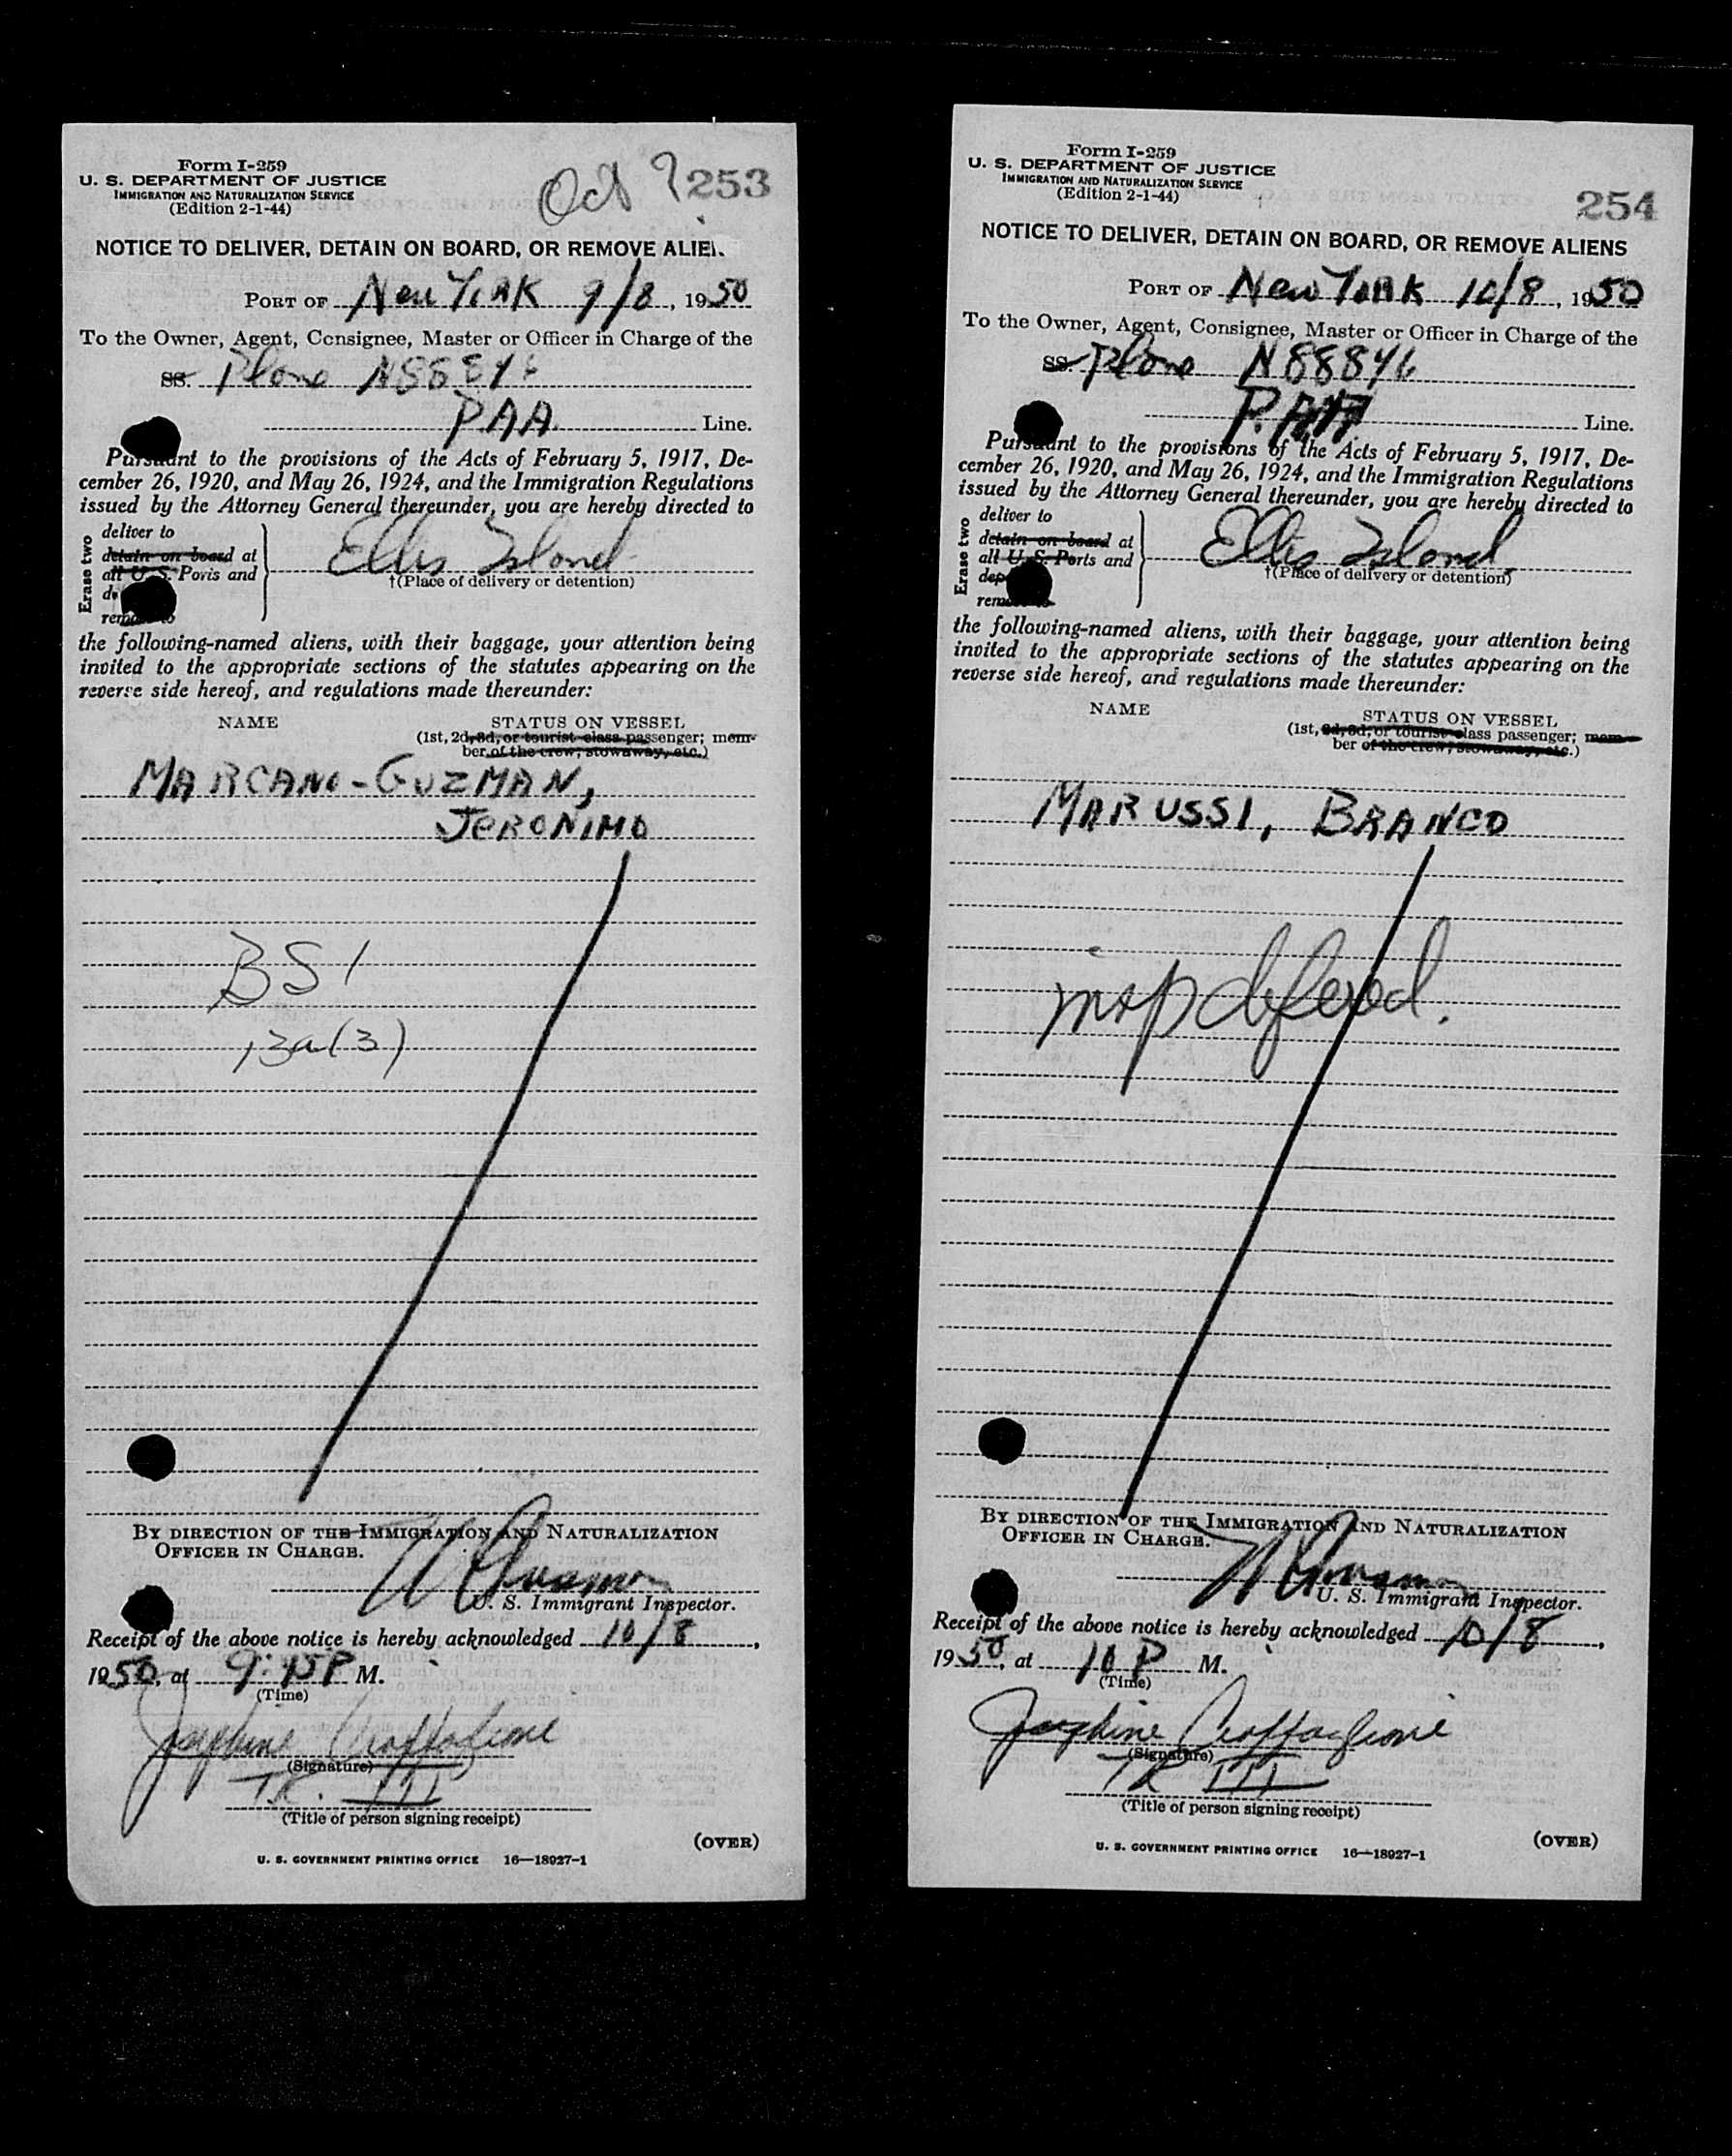 Form I-259
U. S. DEPARTMENT OF JUSTICE
IMMIGRATION AND NATURALIZATION SERVICE
(Edition 2-1-44)
Oct 9 253
NOTICE TO DELIVER, DETAIN ON BOARD, OR REMOVE ALIEN
PORT OF New York 9/8, 1950
To the Owner, Agent, Consignee, Master or Officer in Charge of the
SS. Plane N88846
PAA Line.
Pursuant to the provisions of the Acts of February 5, 1917, De-
cember 26, 1920, and May 26, 1924, and the Immigration Regulations
issued by the Attorney General thereunder, you are hereby directed to
Erase two
deliver to
detain on board at
all U. S. Ports and
remove to
Ellis Island
†(Place of delivery or detention)
the following-named aliens, with their baggage, your attention being
invited to the appropriate sections of the statutes appearing on the
reverse side hereof, and regulations made thereunder:
NAME STATUS ON VESSEL
(1st, 2d, 3d, or tourist class passenger; mem-
ber of the crew, stowaway, etc.)
MARCANO-GUZMAN,
JERONIMO
BSI
13a(3)
BY DIRECTION OF THE IMMIGRATION AND NATURALIZATION
OFFICER IN CHARGE.
U. S. Immigrant Inspector.
Receipt of the above notice is hereby acknowledged 10/8,
1950, at 9:15P M.
(Time)
Josephine
(Signature)
TR. III
(Title of person signing receipt)
(OVER)
U. S. GOVERNMENT PRINTING OFFICE 16—18927-1
Form I-259
U. S. DEPARTMENT OF JUSTICE
IMMIGRATION AND NATURALIZATION SERVICE
(Edition 2-1-44)
254
NOTICE TO DELIVER, DETAIN ON BOARD, OR REMOVE ALIENS
PORT OF New York 10/8, 1950
To the Owner, Agent, Consignee, Master or Officer in Charge of the
SS. Plane N88846
P.AA Line.
Pursuant to the provisions of the Acts of February 5, 1917, De-
cember 26, 1920, and May 26, 1924, and the Immigration Regulations
issued by the Attorney General thereunder, you are hereby directed to
Erase two
deliver to
detain on board at
all U. S. Ports and
dep
remove to
Ellis Island
†(Place of delivery or detention)
the following-named aliens, with their baggage, your attention being
invited to the appropriate sections of the statutes appearing on the
reverse side hereof, and regulations made thereunder:
NAME STATUS ON VESSEL
(1st, 2d, 3d, or tourist class passenger; mem-
ber of the crew, stowaway, etc.)
MARUSSI, BRANCO
insp defered.
BY DIRECTION OF THE IMMIGRATION AND NATURALIZATION
OFFICER IN CHARGE.
U. S. Immigrant Inspector.
Receipt of the above notice is hereby acknowledged 10/8,
1950, at 10 P M.
(Time)
Josephine
(Signature)
TR III
(Title of person signing receipt)
(OVER)
U. S. GOVERNMENT PRINTING OFFICE 16—18927-1